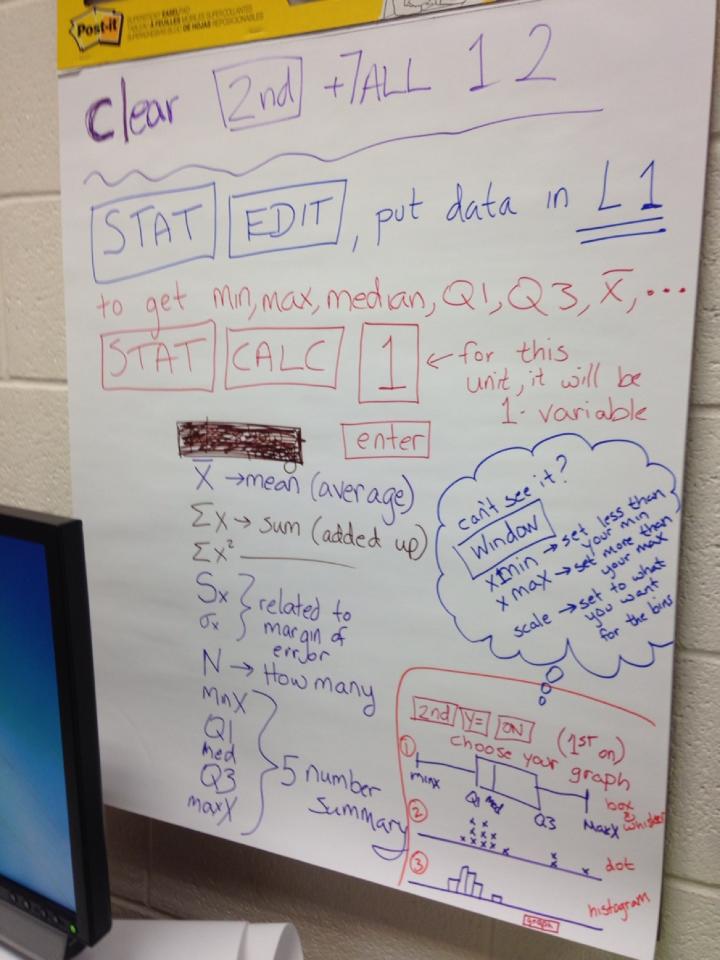 Post-it
SUPERSTICKY EASEL PAD
TABLEAU À FEUILLES MOBILES SUPERCOLLANTES
SUPERADHESIVAS BLOC DE HOJAS REPOSICIONABLES
clear 2nd +7ALL 1 2
STAT EDIT, put data in L1
to get min, max, median, Q1, Q3, x̄, ...
STAT CALC 1 ← for this
unit, it will be
1-variable
enter
x̄ → mean (average)
Σx → sum (added up)
Σx²
Sx
σx
related to
margin of
error
N → How many
mnX
Q1
med
Q3
maxX
5 number
summary
can't see it?
Window
xmin → set less than
your min
x max → set more than
your max
scale → set to what
you want
for the bins
2nd Y= ON (1ST on)
choose your graph
1
minx Q1 med Q3 MaxX
box & whisker
2
dot
3
histogram
graph